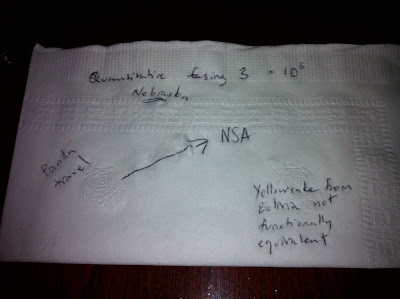 Quantitative Easing 3 × 10⁵
Nebraska
Panda
travel
NSA
Yellowcake from
Bolivia not
functionally
equivalent